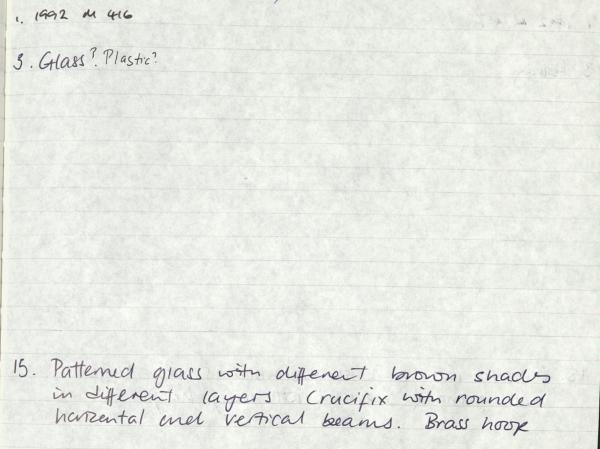 1. 1992 M 416
3. Glass? Plastic?
15. Patterned glass with different brown shades
in different layers Crucifix with rounded
horizental and vertical beams. Brass hoop